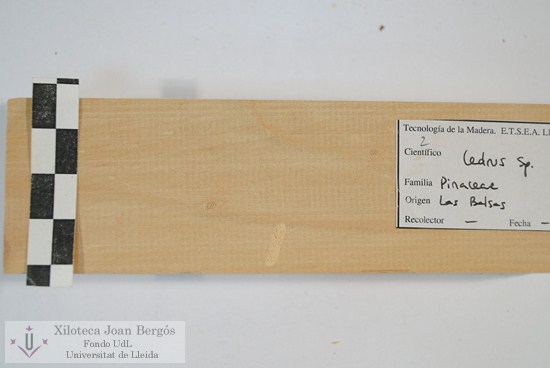 Tecnología de la Madera. E.T.S.E.A. Ll
2
Científico Cedrus Sp.
Familia Pinaceae
Origen Las Balsas
Recolector — Fecha —
Xiloteca Joan Bergós
Fondo UdL
Universitat de Lleida